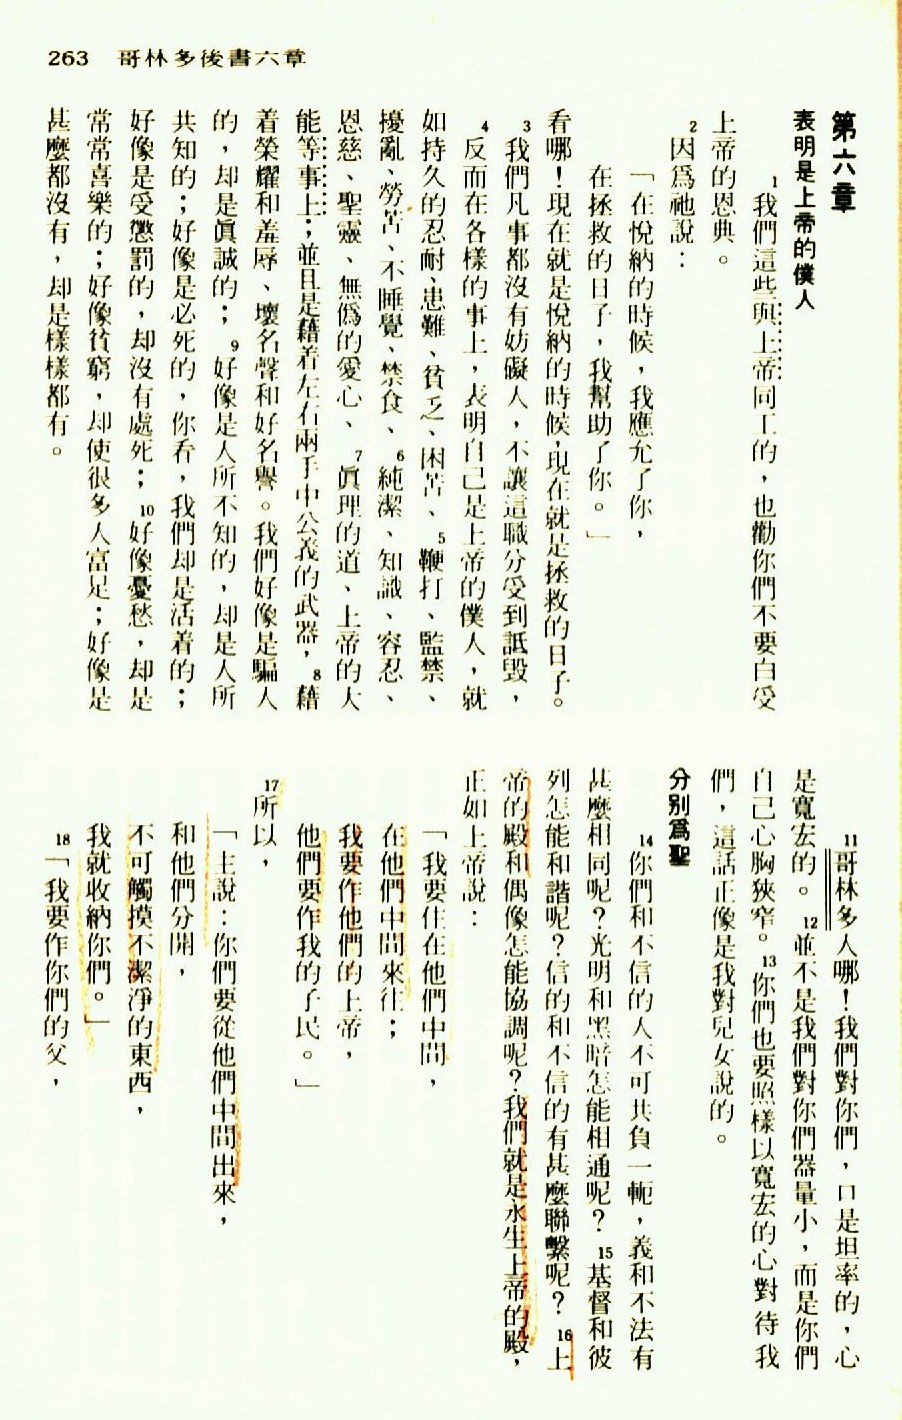 263 哥林多後書六章
第六章
表明是上帝的僕人
1我們這些與上帝同工的，也勸你們不要白受
上帝的恩典。
2因爲祂說：
「在悅納的時候，我應允了你，
在拯救的日子，我幫助了你。」
看哪！現在就是悅納的時候，現在就是拯救的日子。
3我們凡事都沒有妨礙人，不讓這職分受到詆毀，
4反而在各樣的事上，表明自己是上帝的僕人，就
如持久的忍耐、患難、貧乏、困苦、5鞭打、監禁、
擾亂、勞苦、不睡覺、禁食、6純潔、知識、容忍、
恩慈、聖靈、無僞的愛心、7眞理的道、上帝的大
能等事上；並且是藉着左右兩手中公義的武器，8藉
着榮耀和羞辱、壞名聲和好名譽。我們好像是騙人
的，却是眞誠的；9好像是人所不知的，却是人所
共知的；好像是必死的，你看，我們却是活着的；
好像是受懲罰的，却沒有處死；10好像憂愁，却是
常常喜樂的；好像貧窮，却使很多人富足；好像是
甚麼都沒有，却是樣樣都有。
11哥林多人哪！我們對你們，口是坦率的，心
是寬宏的。12並不是我們對你們器量小，而是你們
自己心胸狹窄。13你們也要照樣以寬宏的心對待我
們，這話正像是我對兒女說的。
分別爲聖
14你們和不信的人不可共負一軛，義和不法有
甚麼相同呢？光明和黑暗怎能相通呢？15基督和彼
列怎能和諧呢？信的和不信的有甚麼聯繫呢？16上
帝的殿和偶像怎能協調呢？我們就是永生上帝的殿，
正如上帝說：
「我要住在他們中間，
在他們中間來往；
我要作他們的上帝，
他們要作我的子民。」
17所以，
「主說：你們要從他們中間出來，
和他們分開，
不可觸摸不潔淨的東西，
我就收納你們。」
18「我要作你們的父，